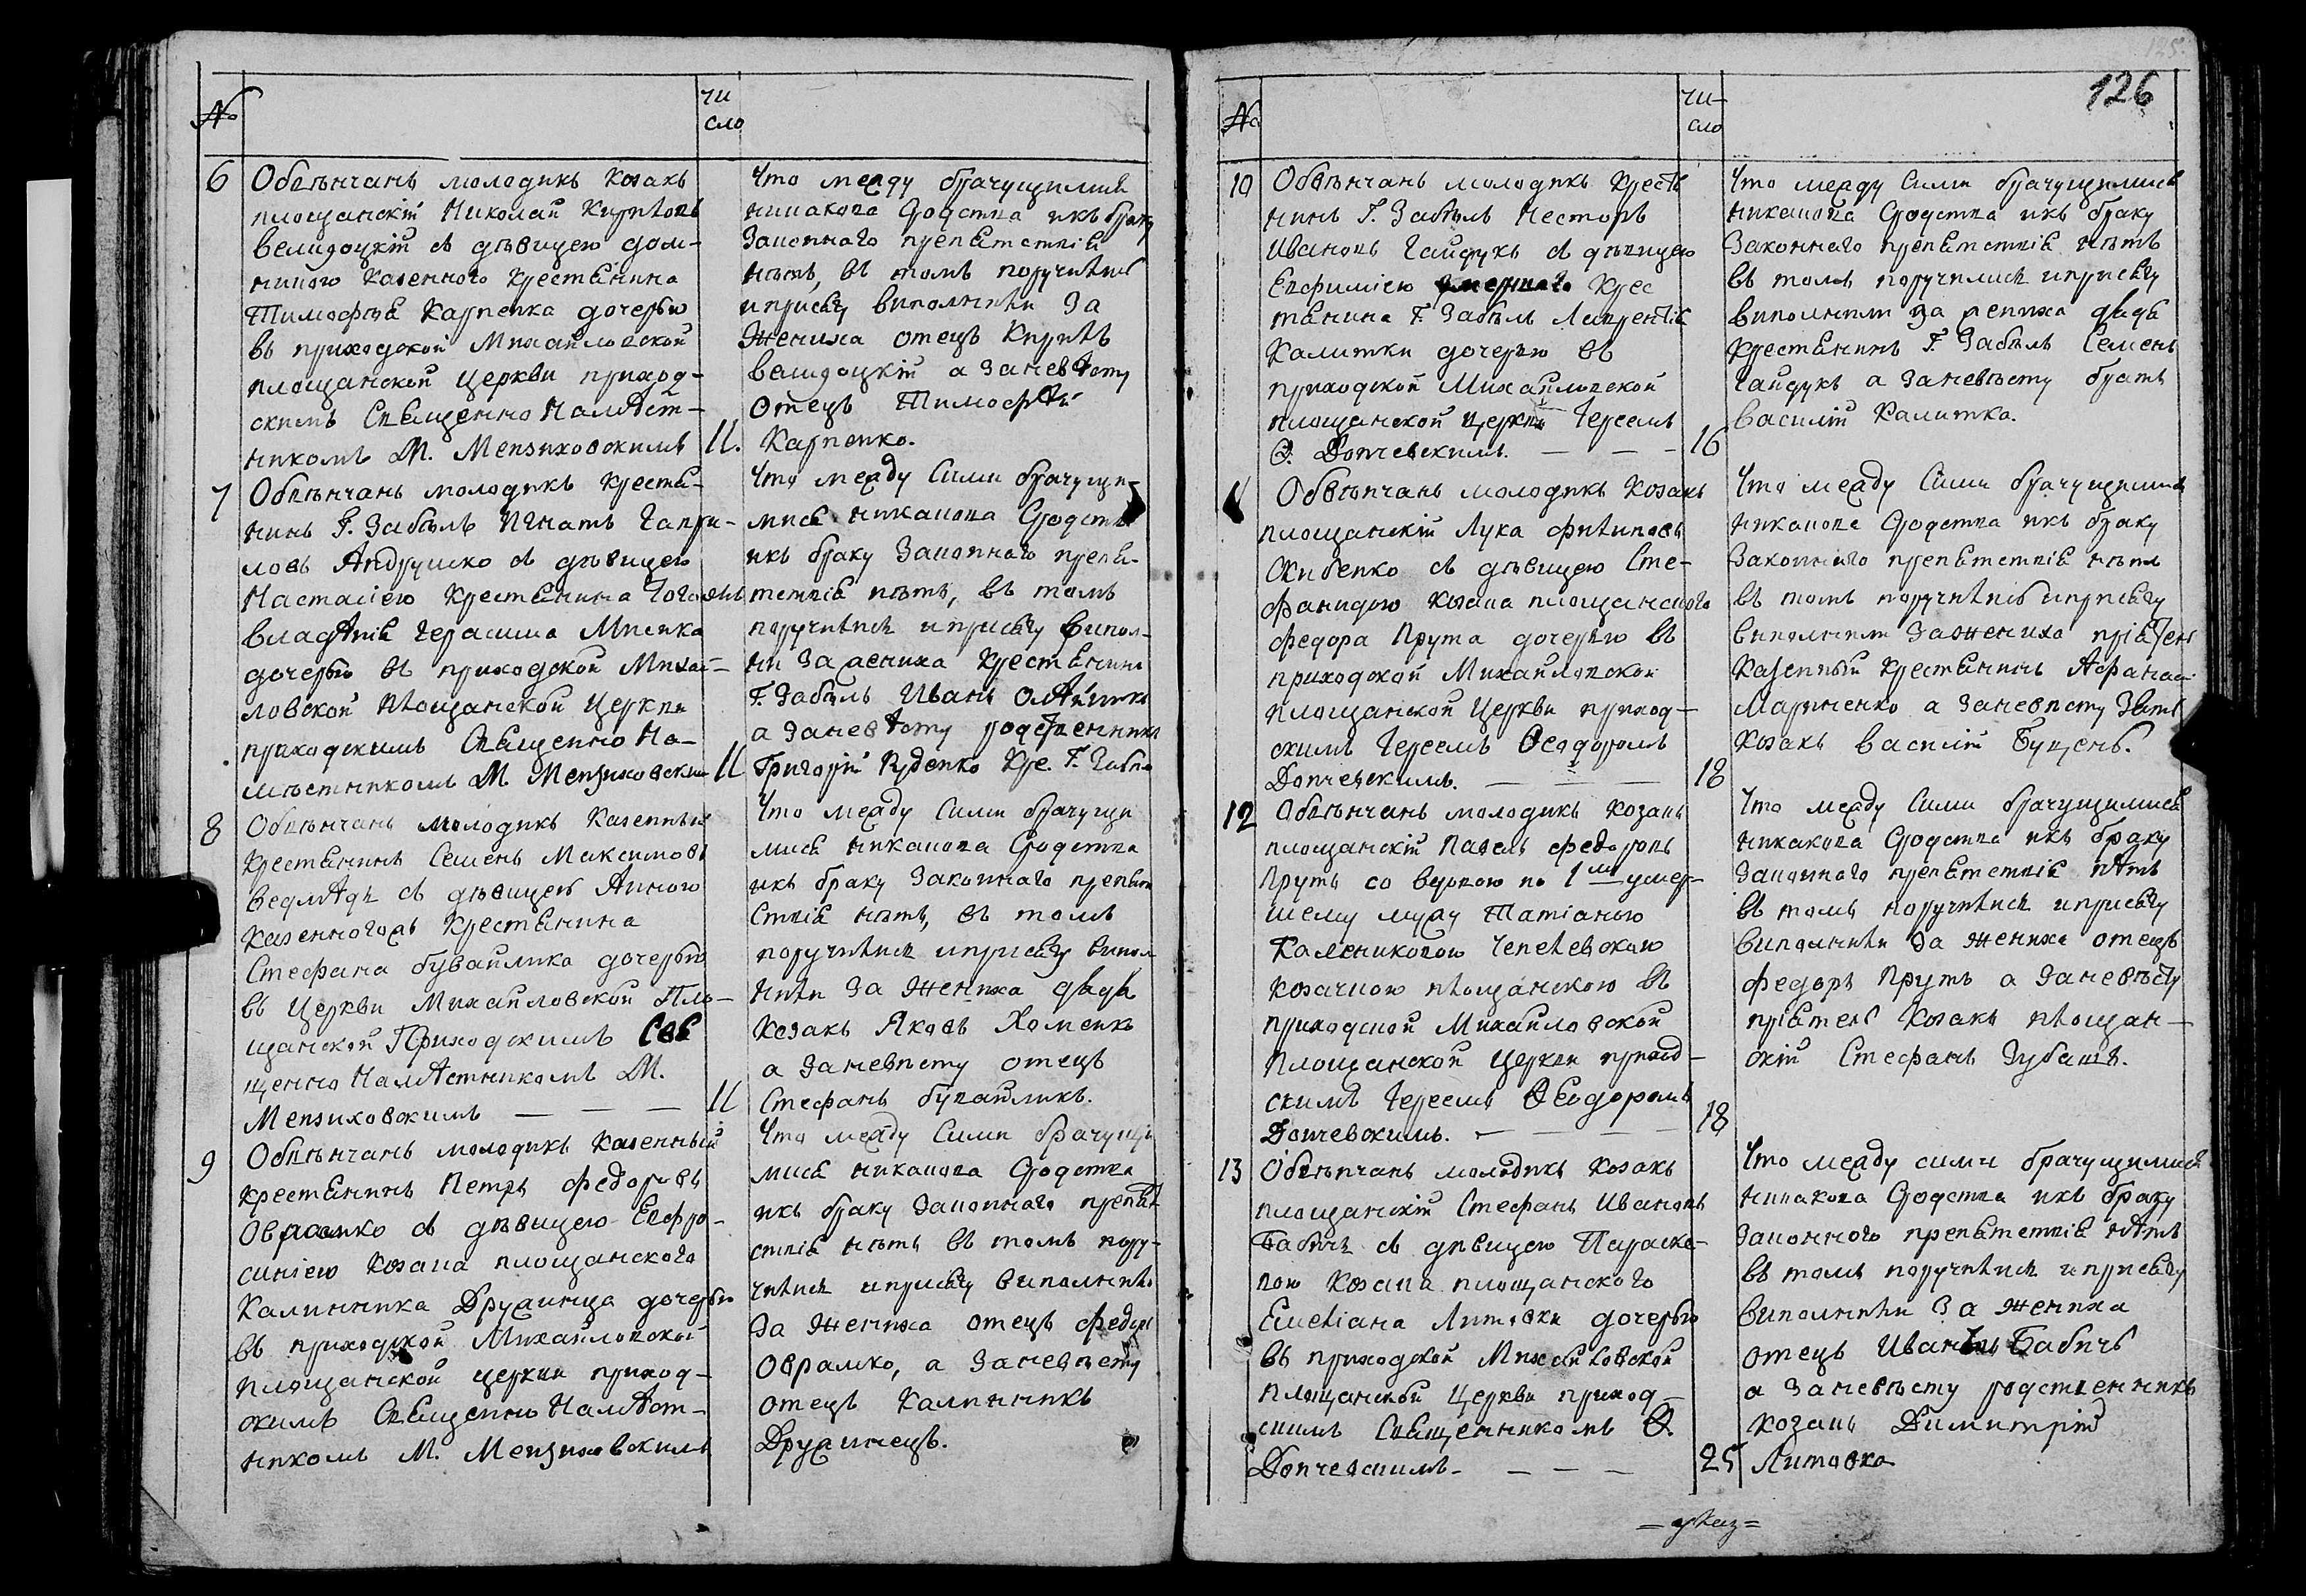 №
чи
сло
6 Обвѣнчанъ молодикъ козакъ
площанскій Николай Кириловъ
Велидоцкій съ дѣвицею дом-
никою казенного крестянина
Тимофѣя Карпенка дочерью
въ приходской Михайловской
площанской церкви приход-
скимъ Священно Намѣст-
никомъ М. Мензиховскимъ 11.
Что между брачущимися
никакова сродства икъ браку
законнаго препятствія
нѣтъ, въ томъ поручились
иприсягу виполнили За
жениха отецъ Кирилъ
Велидоцкій а Заневѣсту
отецъ Тимофѣй
Карпенко.
7 Обвѣнчанъ молодикъ крестя-
нинъ Г. Забѣлъ Игнатъ Гаври-
ловъ Андрушко съ дѣвицею
Настасіею крестянина тогожъ
владѣнія Герасима Мисика
дочерью въ приходской Михай-
ловской площанской Церкви
приходскимъ Священно На-
мѣстникомъ М. Мензиховским 11
Что между Сими брачущи-
мися никакова Сродства
икъ браку Законнаго препя-
тствія нѣтъ, въ томъ
поручились иприсягу випол-
ни За жениха крестянинъ
Г. Забѣлъ Иванъ
а Заневѣсту родственникъ
Григорій Руденко Кре. Г. Забѣл
8 Обвѣнчанъ молодикъ Казенный
крестянинъ Семенъ Максимовъ
Ведмѣдь съ дѣвицею Анною
казенногожъ крестянина
Стефана бувайлика дочерью
въ Церкви Михайловской Пло-
щанской Приходскимъ Свя
щенно Намѣстникомъ М.
Мензиховскимъ — — — 11
Что между Сими брачущи
мися никакова Сродства
икъ браку Законнаго препят
ствія нѣтъ, въ томъ
поручились иприсягу випол
нили За жениха дядя
козакъ Яковъ Хоменко
а Заневѣсту отецъ
Стефанъ бувайликъ.
9 Обвѣнчанъ молодикъ казенный
крестянинъ Петръ федоровъ
Оврамко съ дѣвицею Евфро-
синіею козака площанского
Калинника Дружинца дочерью
въ приходской Михайловской
площанской церкви приход-
скимъ Священно Намѣст-
никомъ М. Мензиховскимъ
Что между Сими брачущи
мися никакова Сродства
икъ браку Законнаго препят
ствія нѣтъ въ томъ пору-
чились иприсягу виполнили
За жениха отецъ федоръ
Оврамко, а Заневѣсту
отецъ Калинникъ
Дружинецъ.
126
№
чи-
сло
10 Обвѣнчанъ молодикъ крестя
нинъ Г. Забѣлъ Несторъ
Ивановъ Гайдукъ съ дѣвицею
Евфиміею умершаго крес
тянина Г. Забѣлъ Лаврентія
Калитки дочерью въ
приходской Михайловской
площанской церкви Іереемъ
Ѳ. Допчевскимъ. — — — 16
Что между Сими брачущимися
никакова Сродства икъ браку
Законнаго препятствія нѣтъ
въ томъ поручились иприсягу
виполнили За жениха дядя
крестянинъ Г. Забѣлъ Семенъ
Гайдукъ а Заневѣсту братъ
Василій Калитка.
Обвѣнчанъ молодикъ Козакъ
площанскій Лука Филиповъ
Скибенко съ дѣвицею Сте-
фанидою козака площанского
федора Прута дочерью въ
приходской Михайловской
площанской Церкви приход-
скимъ Іереемъ Ѳеодоромъ
Допчевскимъ. — — — 18
Что между Сими брачущимися
никакова Сродства икъ браку
Законнаго препятствія нѣтъ
въ томъ поручились иприсягу
виполнили За жениха пріятель
казенный крестянинъ Афанасі
Мариненко а Заневѣсту Зять
козакъ Василій Буцень.
12 Обвѣнчанъ молодикъ козакъ
площанскій Павелъ федоровъ
Прутъ со вдовою по 1 мъ умер-
шему мужу Татіаною
Калениковою Чепелевскою
козачкою площанскою въ
приходской Михайловской
площанской Церкви приход-
скимъ Іереемъ Ѳеодоромъ
Допчевскимъ. — — — — 18
Что между Сими брачущимися
никакова Сродства икъ браку
Законнаго препятствія нѣтъ
въ томъ поручились иприсягу
виполнили За жениха отецъ
федоръ Прутъ а Заневѣсту
пріятель козакъ площан-
скій Стефанъ Зубашъ.
13 Обвѣнчанъ молодикъ козакъ
площанскій Стефанъ Ивановъ
Бабичъ съ дѣвицею Параске-
вою козака площанского
Емеліана Литовки дочерью
въ приходской Михайловской
площанской Церкви приход-
скимъ Священникомъ Ѳ.
Допчевскимъ — — — — 25
Что между сими брачущимися
никакова Сродства икъ браку
Законного препятствія нѣтъ
въ томъ поручились иприсягу
виполнили За жениха
отецъ Иванъ Бабичъ
а Заневѣсту родственникъ
козакъ Димитрій
Литовка